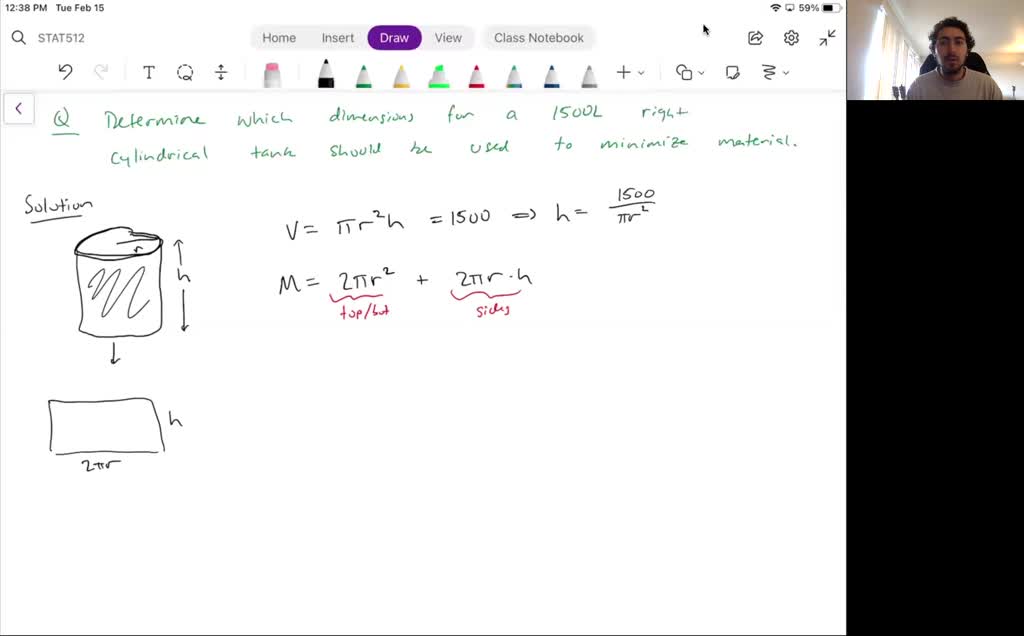 12:38 PM Tue Feb 15
59%
STAT512
Home Insert Draw View Class Notebook
Q Determine which dimensions for a 1500L right
cylindrical tank should be used to minimize material.
Solution
V = πr²h = 1500 ⇒ h = 1500/πr²
r
h
M = 2πr² + 2πr·h
top/bot sides
h
2πr